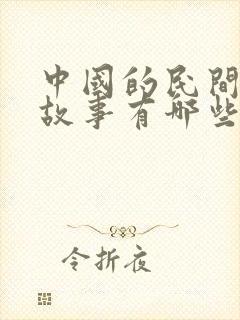 中國的民間
故事有哪些
令折夜